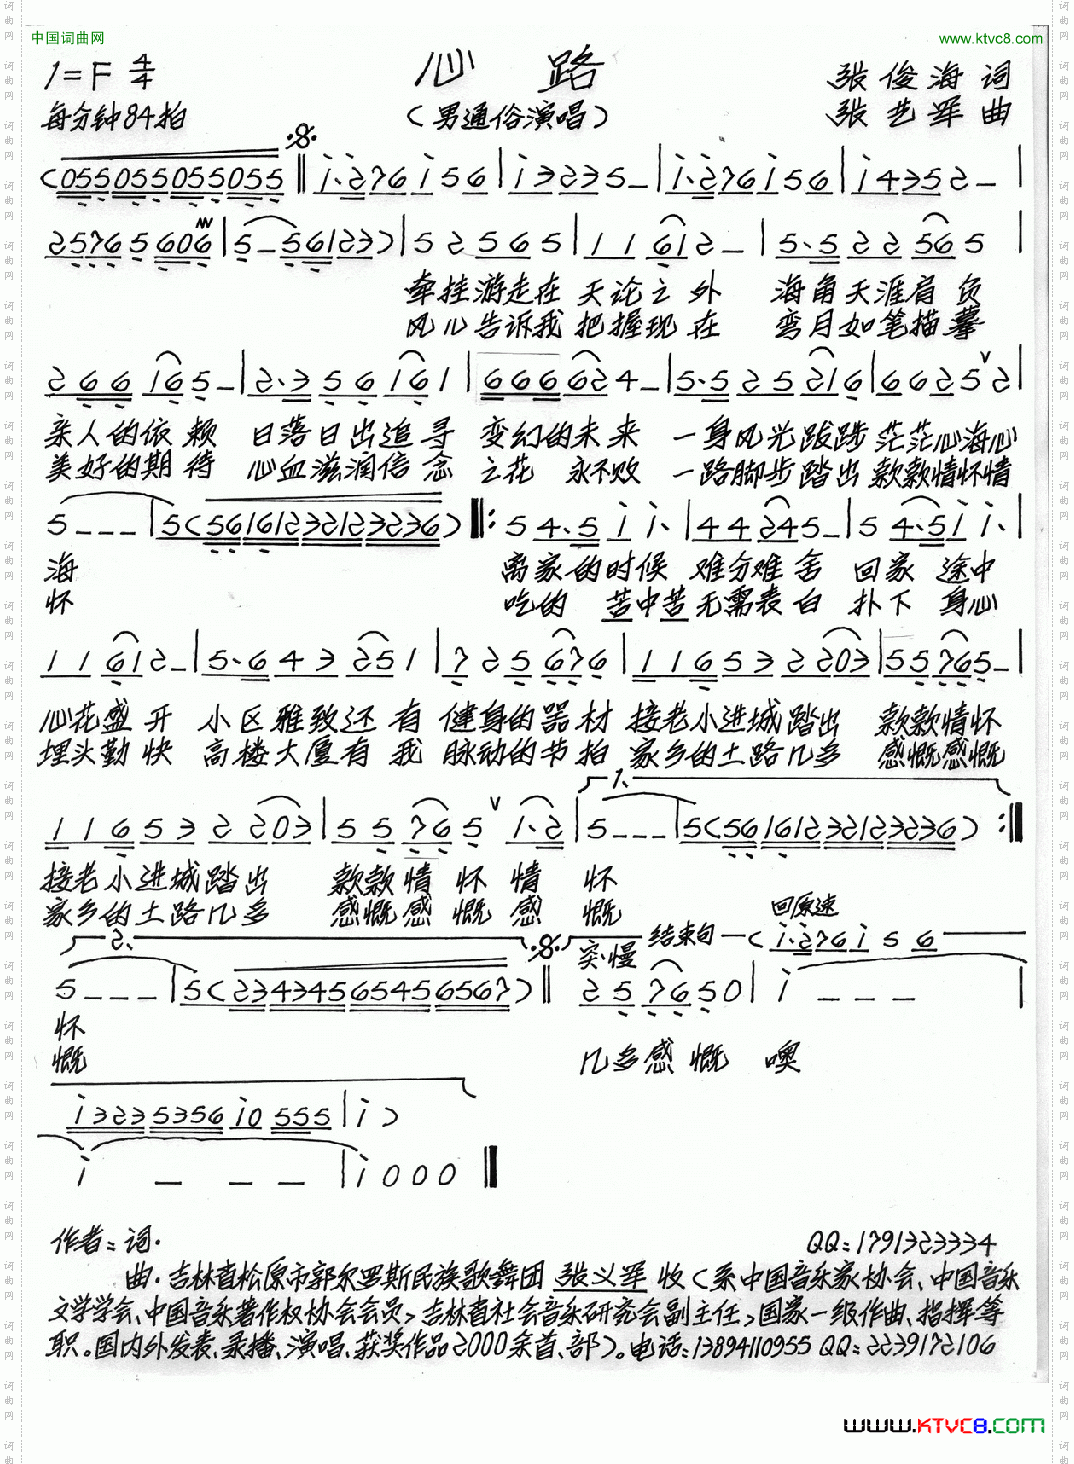 中国词曲网
www.ktvc8.com
1=F 4/4
心 路
张俊海 词
每分钟84拍
(男通俗演唱)
张艺军 曲
(055055055055‖i·276i56|i3235-|i·276i56|i4352-|
25765606|5-56123)|52565|11612-|5·522565|
牵挂游走在天论之外 海角天涯肩负
风儿告诉我把握现在 弯月如笔描摹
266165-|2·356161|6666624-|5·525216|66252|
亲人的依赖 日落日出追寻 变幻的未来 一身风光跋涉 茫茫心海心
美好的期待 心血滋润信念 之花 永不败 一路脚步踏出 款款情怀情
5---|5(561612321232 36)‖:54·5ii·|44245-|54·5ii·|
海 离家的时候 难分难舍 回家 途中
怀 吃的 苦中苦无需表白 扑下 身心
11612-|5·643251|725676|116532203|55765-|
心花盛开 小区雅致还有 健身的器材 接老小进城踏出 款款情怀
埋头勤快 高楼大厦有我 脉动的节拍 家乡的土路几多 感慨感慨
1.
116532203|55765 1·2|5---|5(56161232123236):‖
接老小进城踏出 款款情怀情 怀
家乡的土路几多 感慨感慨感 慨
回原速
2. 结束句 (i·276i56
突慢
5---|5(23434565456567)‖257650|i---|
怀
慨 几多感慨 噢
i3235356i0555|i)
i---|i000‖
作者:词·
QQ:1791323334
曲·吉林省松原市郭尔罗斯民族歌舞团 张义军 收(系中国音乐家协会、中国音乐
文学学会、中国音乐著作权协会会员,吉林省社会音乐研究会副主任,国家一级作曲、指挥等
职。国内外发表、录播、演唱、获奖作品2000余首、部)。电话:13894110955 QQ:2239172106
www.KTVC8.com